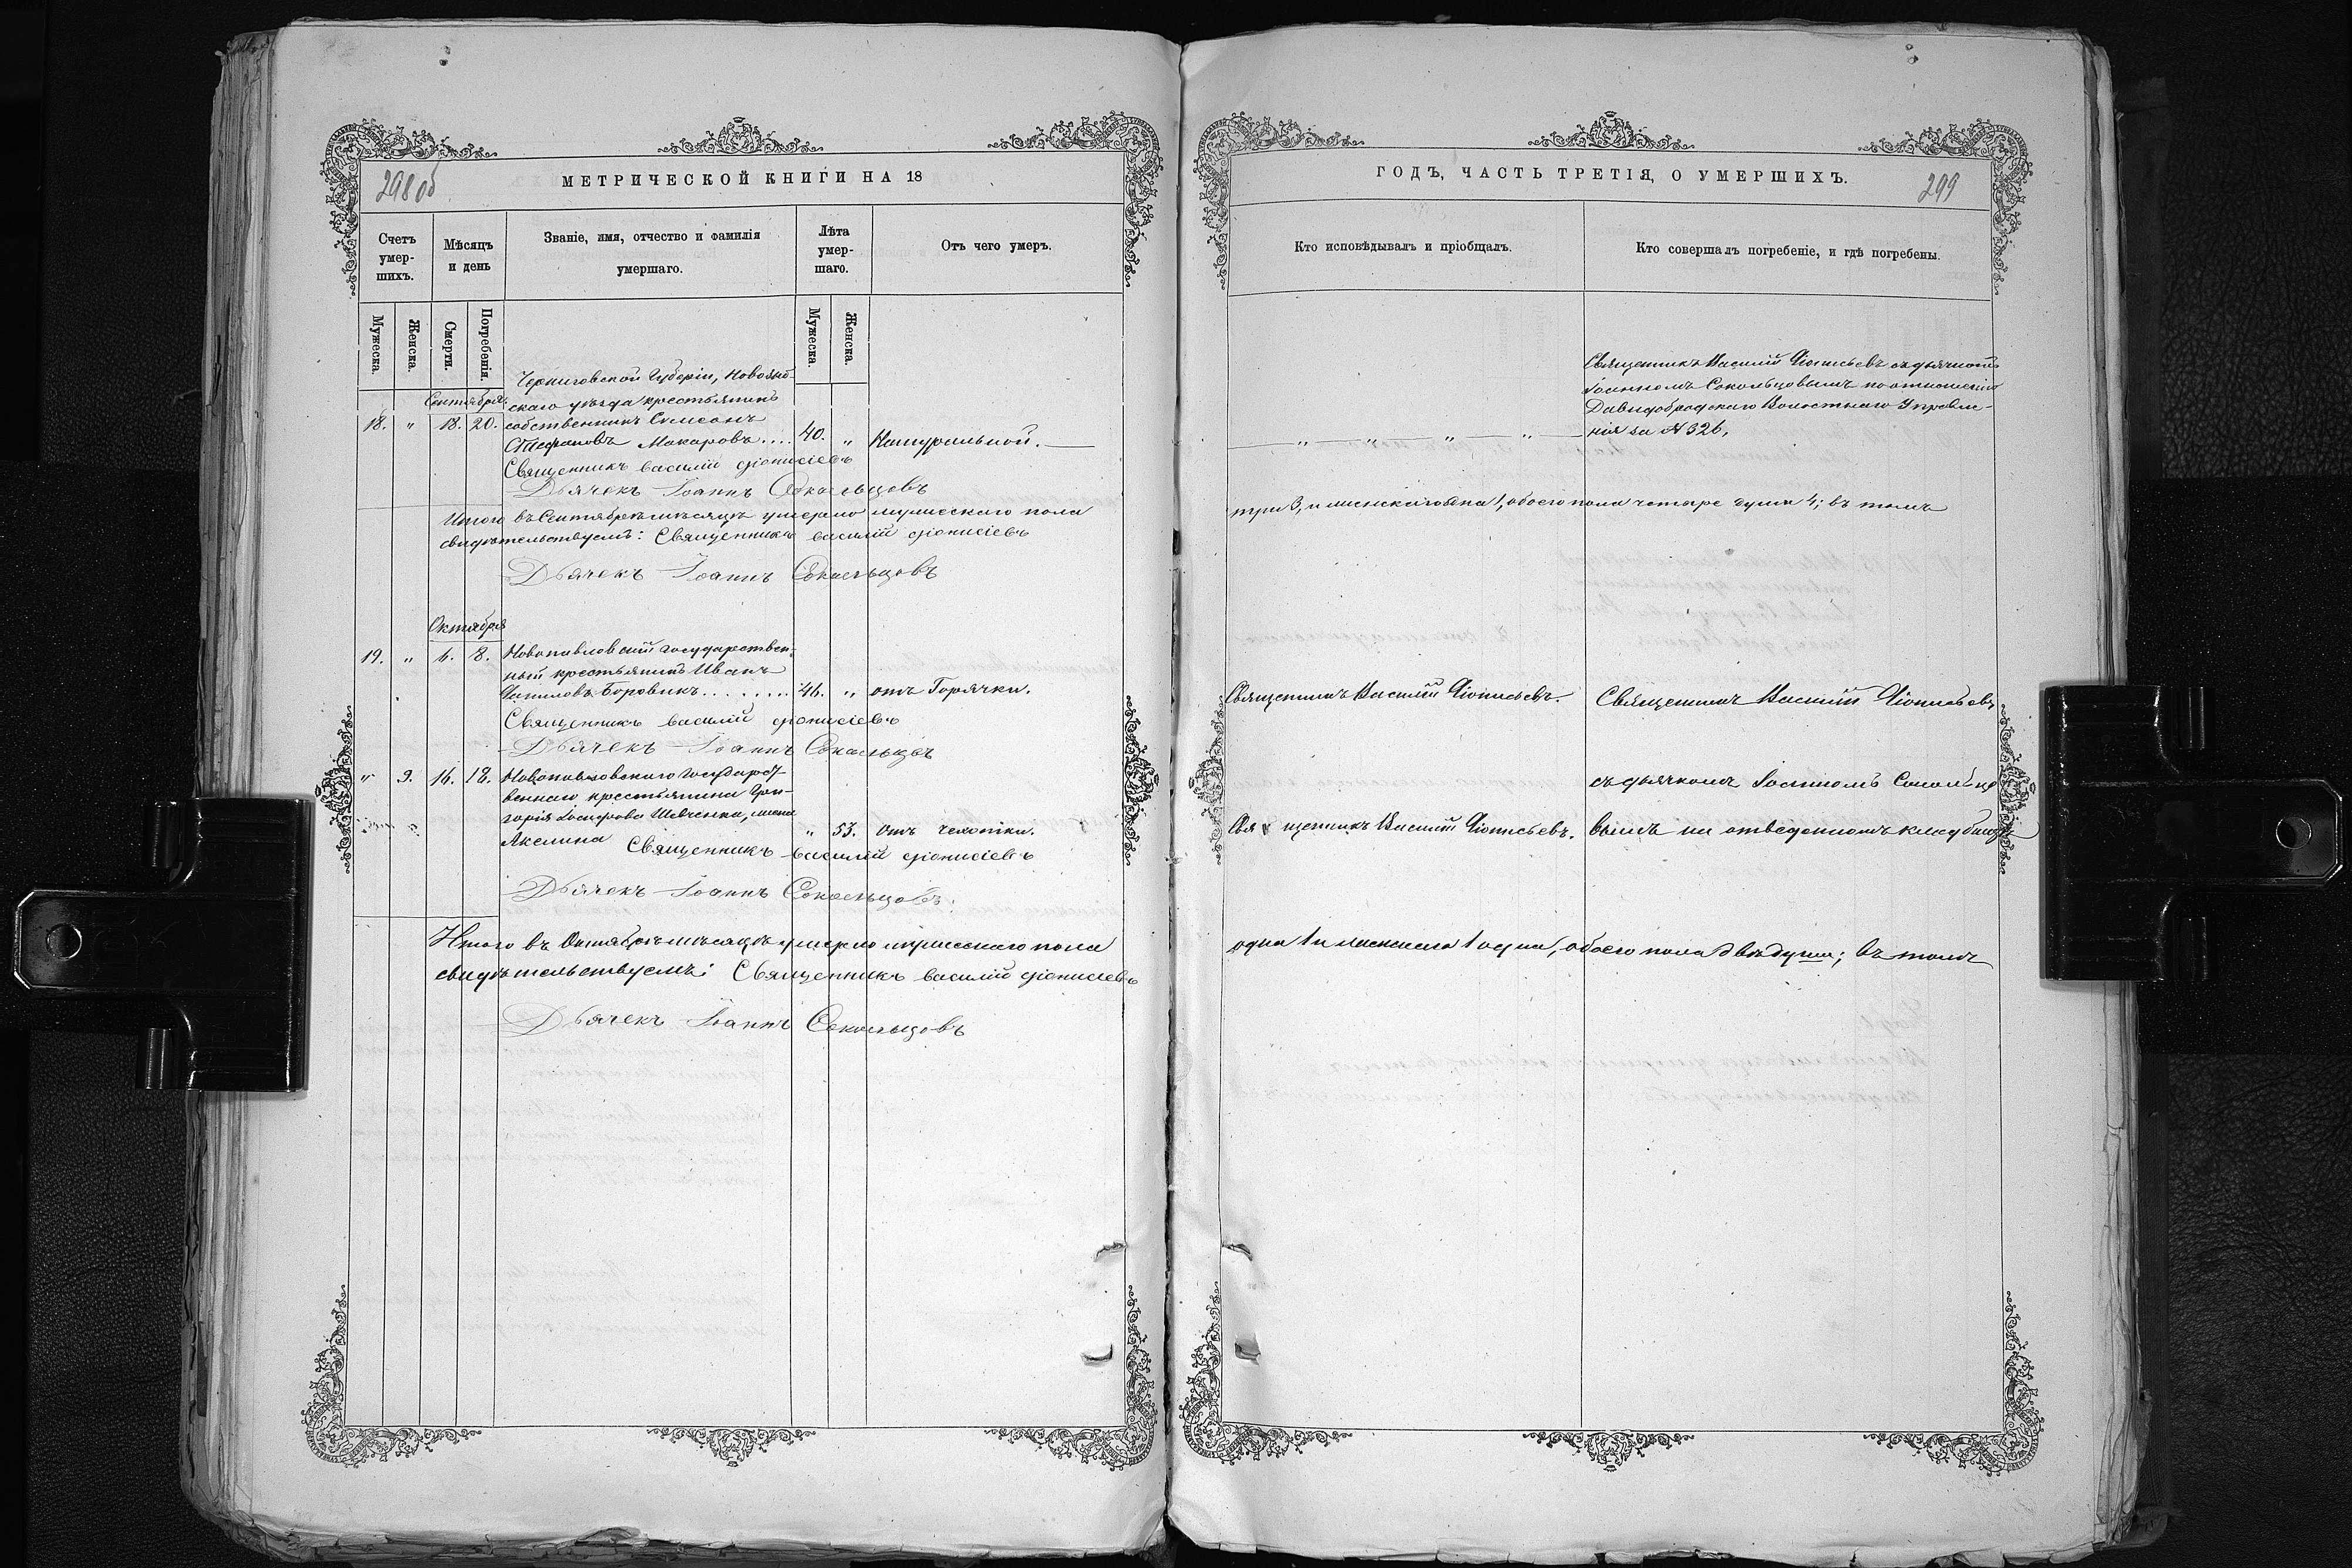 298 об
МЕТРИЧЕСКОЙ КНИГИ НА 18
Счетъ умер-шихъ.
Мѣсяцъ и день
Званіе, имя, отчество и фамилія умершаго.
Лѣта умер-шаго.
Отъ чего умеръ.
Мужеска.
Женска.
Смерти.
Погребенія.
Мужеска.
Женска.
Сентября.
Черниговской Губерніи,
скаго уѣзда крестьянинъ
18. " 18. 20. собственникъ Симеонъ
Стефановъ Макаровъ.... 40. " Натуральной.
Священникъ Василій Діонисіевъ
Дьячекъ Іоаннъ Сокольцовъ
Итого въ Сентябрѣ мѣсяцѣ умерло мужескаго пола
свидѣтельствуемъ: Священникъ Василій Діонисіевъ
Дьячекъ Іоаннъ Сокольцовъ
Октября
19. " 6. 8. Новопавловскій государствен-
ный крестьянинъ Иванъ
Боровикъ........ 46. " отъ Горячки.
Священникъ Василій Діонисіевъ
Дьячекъ Іоаннъ Сокольцовъ
" 9. 16. 18. Новопавловскаго Государст-
веннаго крестьянина Гри-
горія Іосифова Шевченка, жена
Акелина " 53. отъ чахотки.
Священникъ Василій Діонисіевъ
Дьячекъ Іоаннъ Сокольцовъ.
Итого въ Октябрѣ мѣсяцѣ умерло мужескаго пола
свидѣтельствуемъ: Священникъ Василій Діонисіевъ
Дьячекъ Іоаннъ Сокольцовъ
ГОДЪ, ЧАСТЬ ТРЕТІЯ, О УМЕРШИХЪ.
299
Кто исповѣдывалъ и пріобщалъ.
Кто совершалъ погребеніе, и гдѣ погребены.
Священникъ Василій Діонисьевъ съ дьячкомъ
Іоанномъ Сокольцовымъ по отношенію
Давидобродскаго Волостнаго Управле-
" " " " нія за № 326,
три 3, и женскаго одна 1, обоего пола четыре души 4; въ томъ
Священникъ Василій Діонисьевъ. Священникъ Василій Діонисьевъ
съ дьячкомъ Іоанномъ Сокольцо
Священникъ Василій Діонисьевъ. вымъ на отведенномъ кладбищѣ
одна 1 и женскаго 1 одна, обоего пола двѣ души; въ томъ